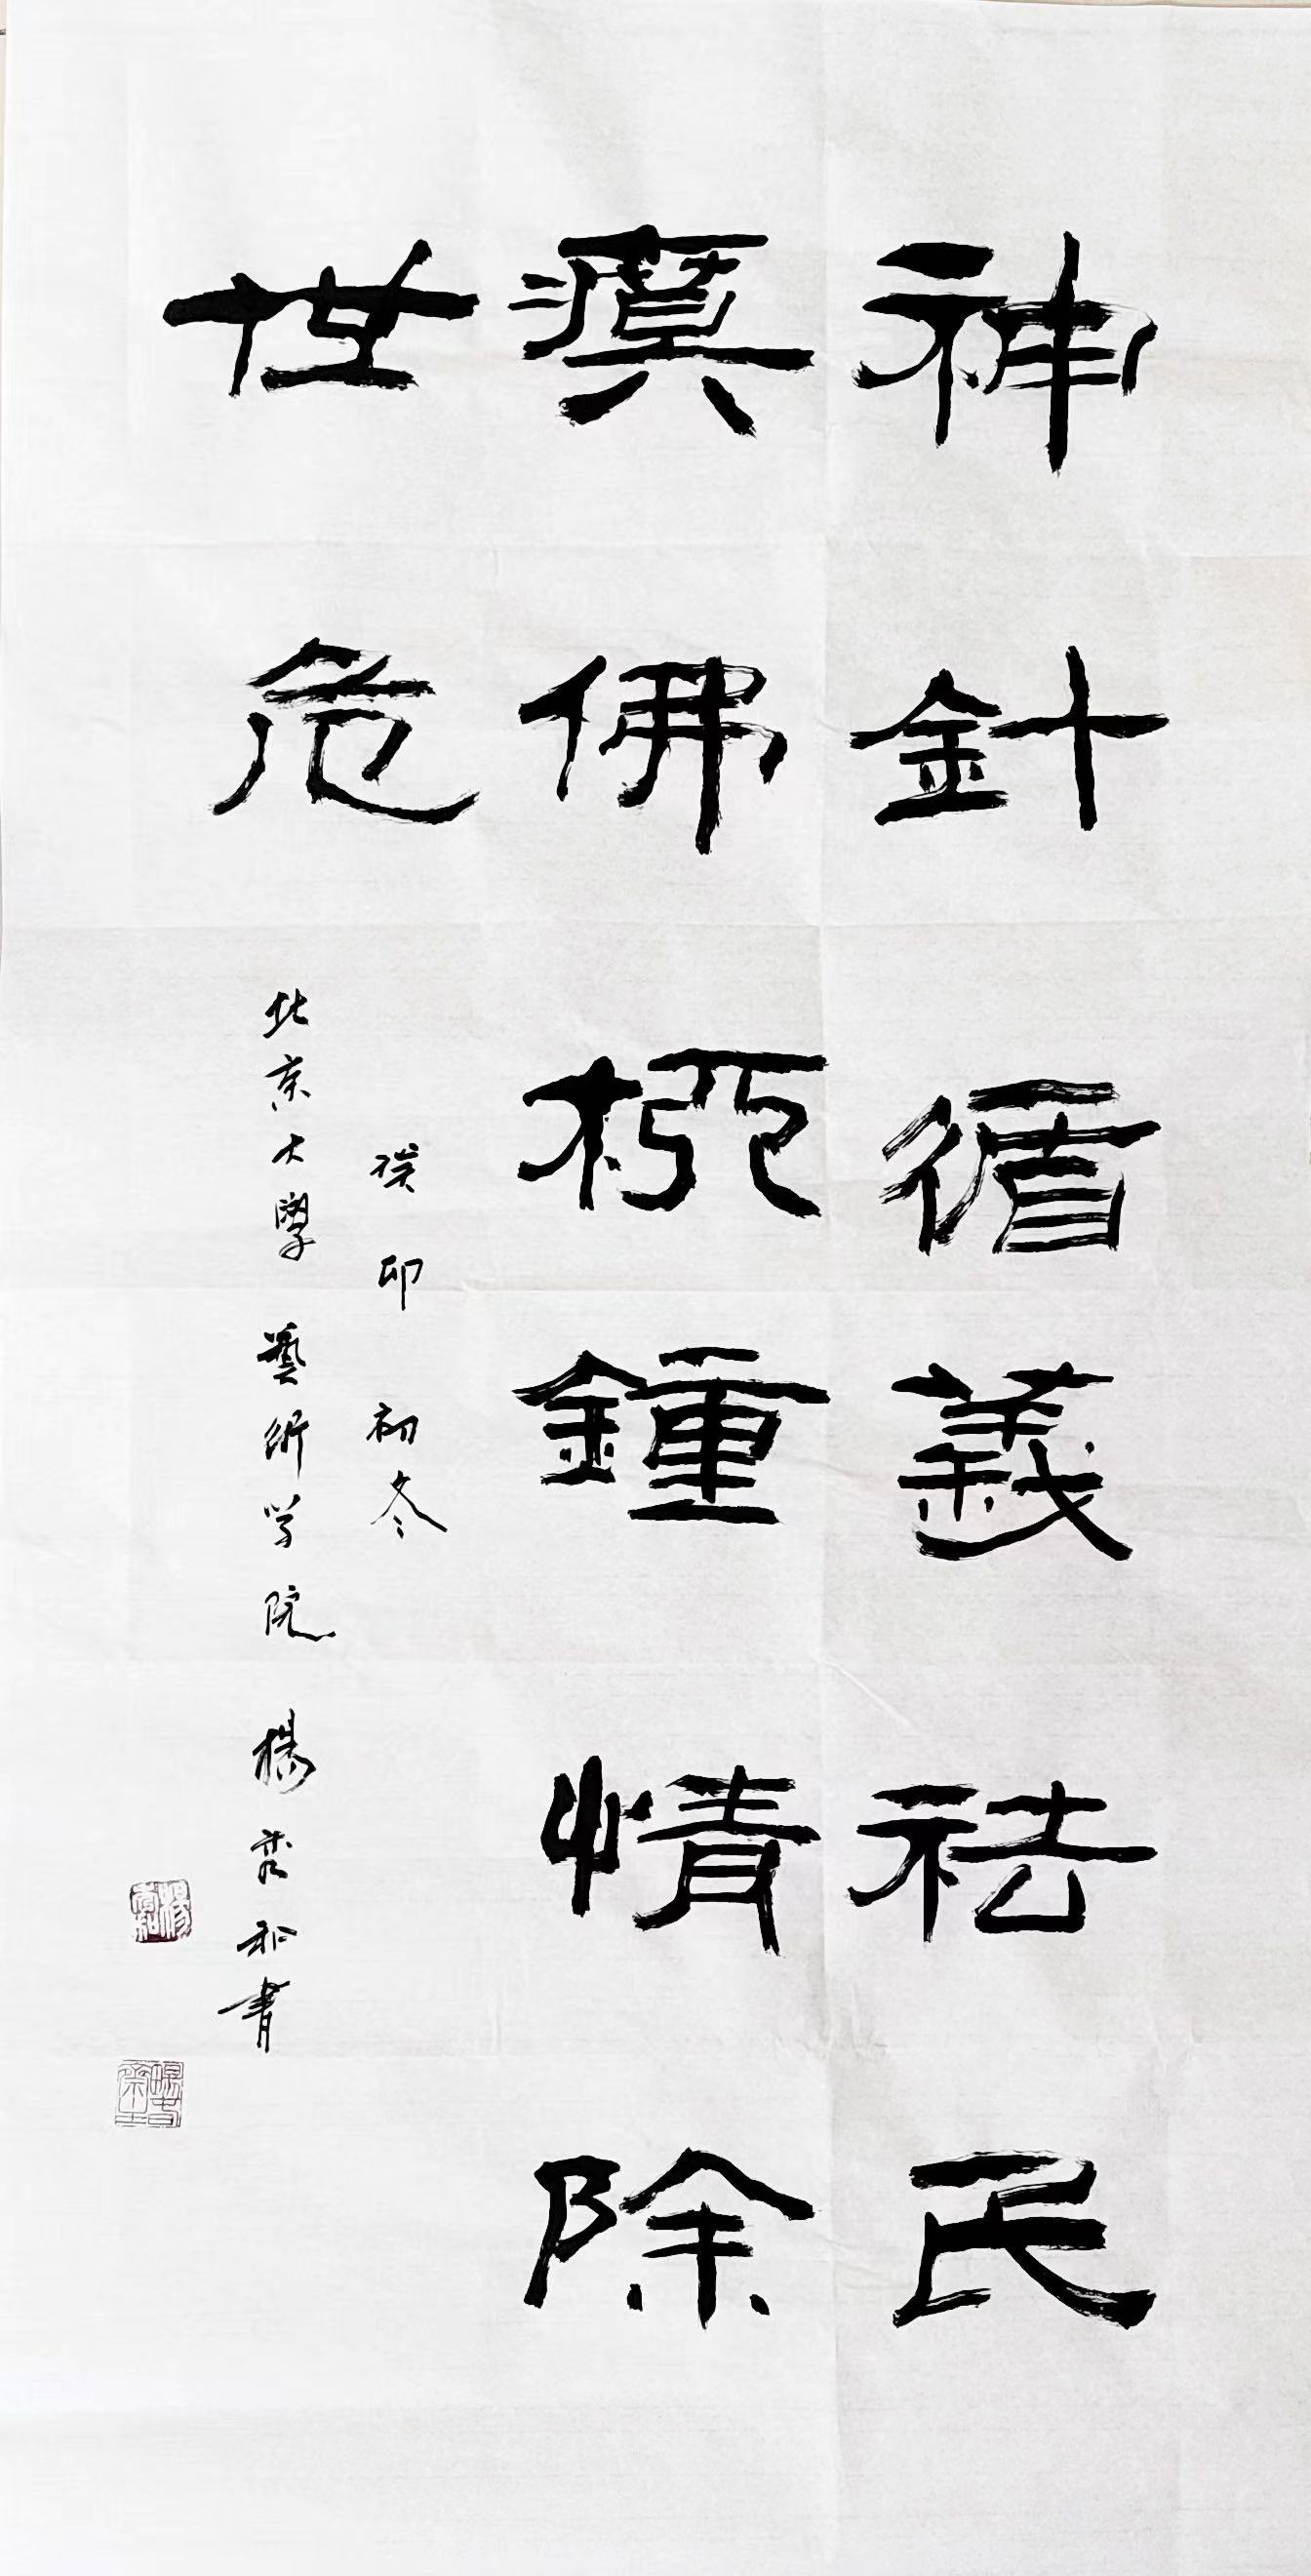 神針循義祛民
瘼佛柳鍾情除
世危
癸卯初冬
北京大學藝術学院楊 和書